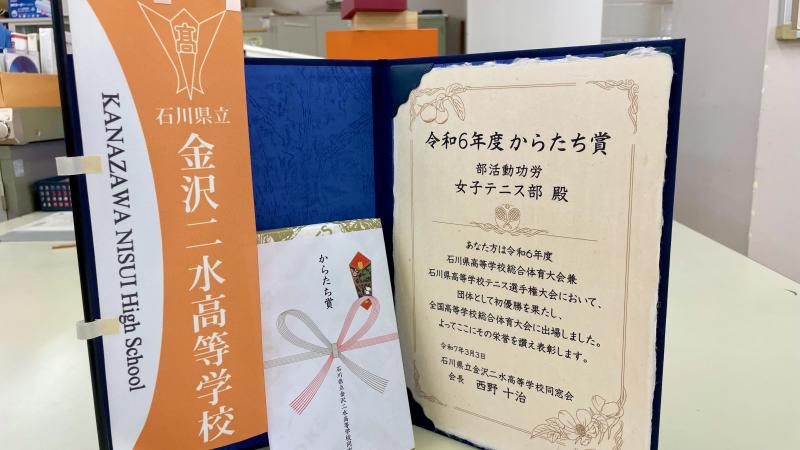 高
石川県立
金沢二水高等学校
KANAZAWA NISUI High School
からたち賞
石川県立金沢二水高等学校同窓
令和6年度 からたち賞
部活動功労
女子テニス部 殿
あなた方は令和6年度
石川県高等学校総合体育大会兼
石川県高等学校テニス選手権大会において、
団体として初優勝を果たし、
全国高等学校総合体育大会に出場しました。
よってここにその栄誉を讃え表彰します。
令和7年3月3日
石川県立金沢二水高等学校同窓会
会長 西野 十治